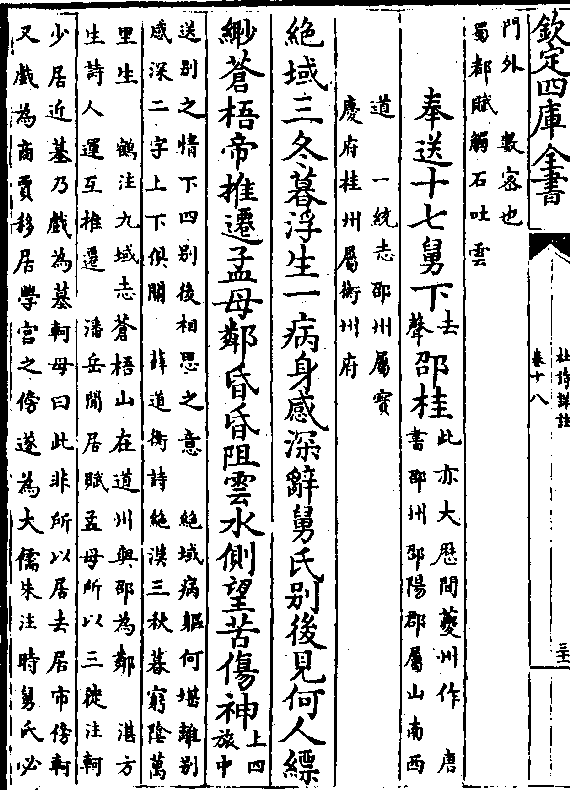 欽定四庫全書
杜詩詳註
卷十八
門外 數家也
蜀都賦觸石吐雲
奉送十七舅下去聲邵桂此亦大厯間夔州作 唐書邵州邵陽郡屬山南西
道 一統志邵州屬寶
慶府桂州屬衡州府
絶域三冬暮浮生一病身感深辭舅氏别後見何人縹
緲蒼梧帝推遷孟母鄰昏昏阻雲水側望苦傷神上四旅中
送别之情下四别後相思之意 絶域病軀何堪離别
感深二字上下俱關 薛道衡詩絶漠三秋暮窮陰萬
里生 鶴注九域志蒼梧山在道州與邵為鄰 湛方
生詩人運互推遷 潘岳閒居賦孟母所以三徙注軻
少居近墓乃戲為墓軻母曰此非所以居去居市傍軻
又戲為商賈移居學宫之傍遂為大儒朱注時舅氏必